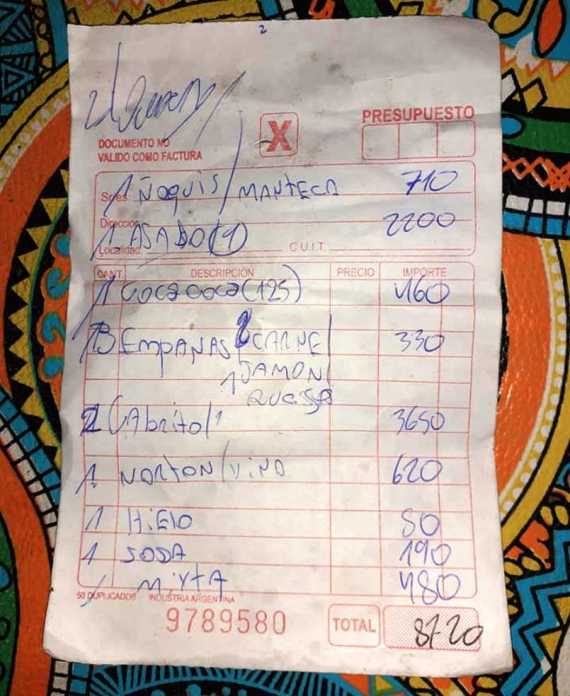 2
PRESUPUESTO
X
DOCUMENTO NO
VALIDO COMO FACTURA
1 ÑOQUIS / MANTECA 710
Dirección
1 ASADO (1) 2200
Localidad C U I T
CANT. DESCRIPCIÓN PRECIO IMPORTE
1 COCA COCA (125) 460
3 EMPANAS 2 CARNE 330
1 JAMON
QUESO
2 CABRITO / 1 3650
1 NORTON / VINO 620
1 HIELO 80
1 SODA 190
1 MIXTA 480
50 DUPLICADOS INDUSTRIA ARGENTINA
9789580 TOTAL 8720